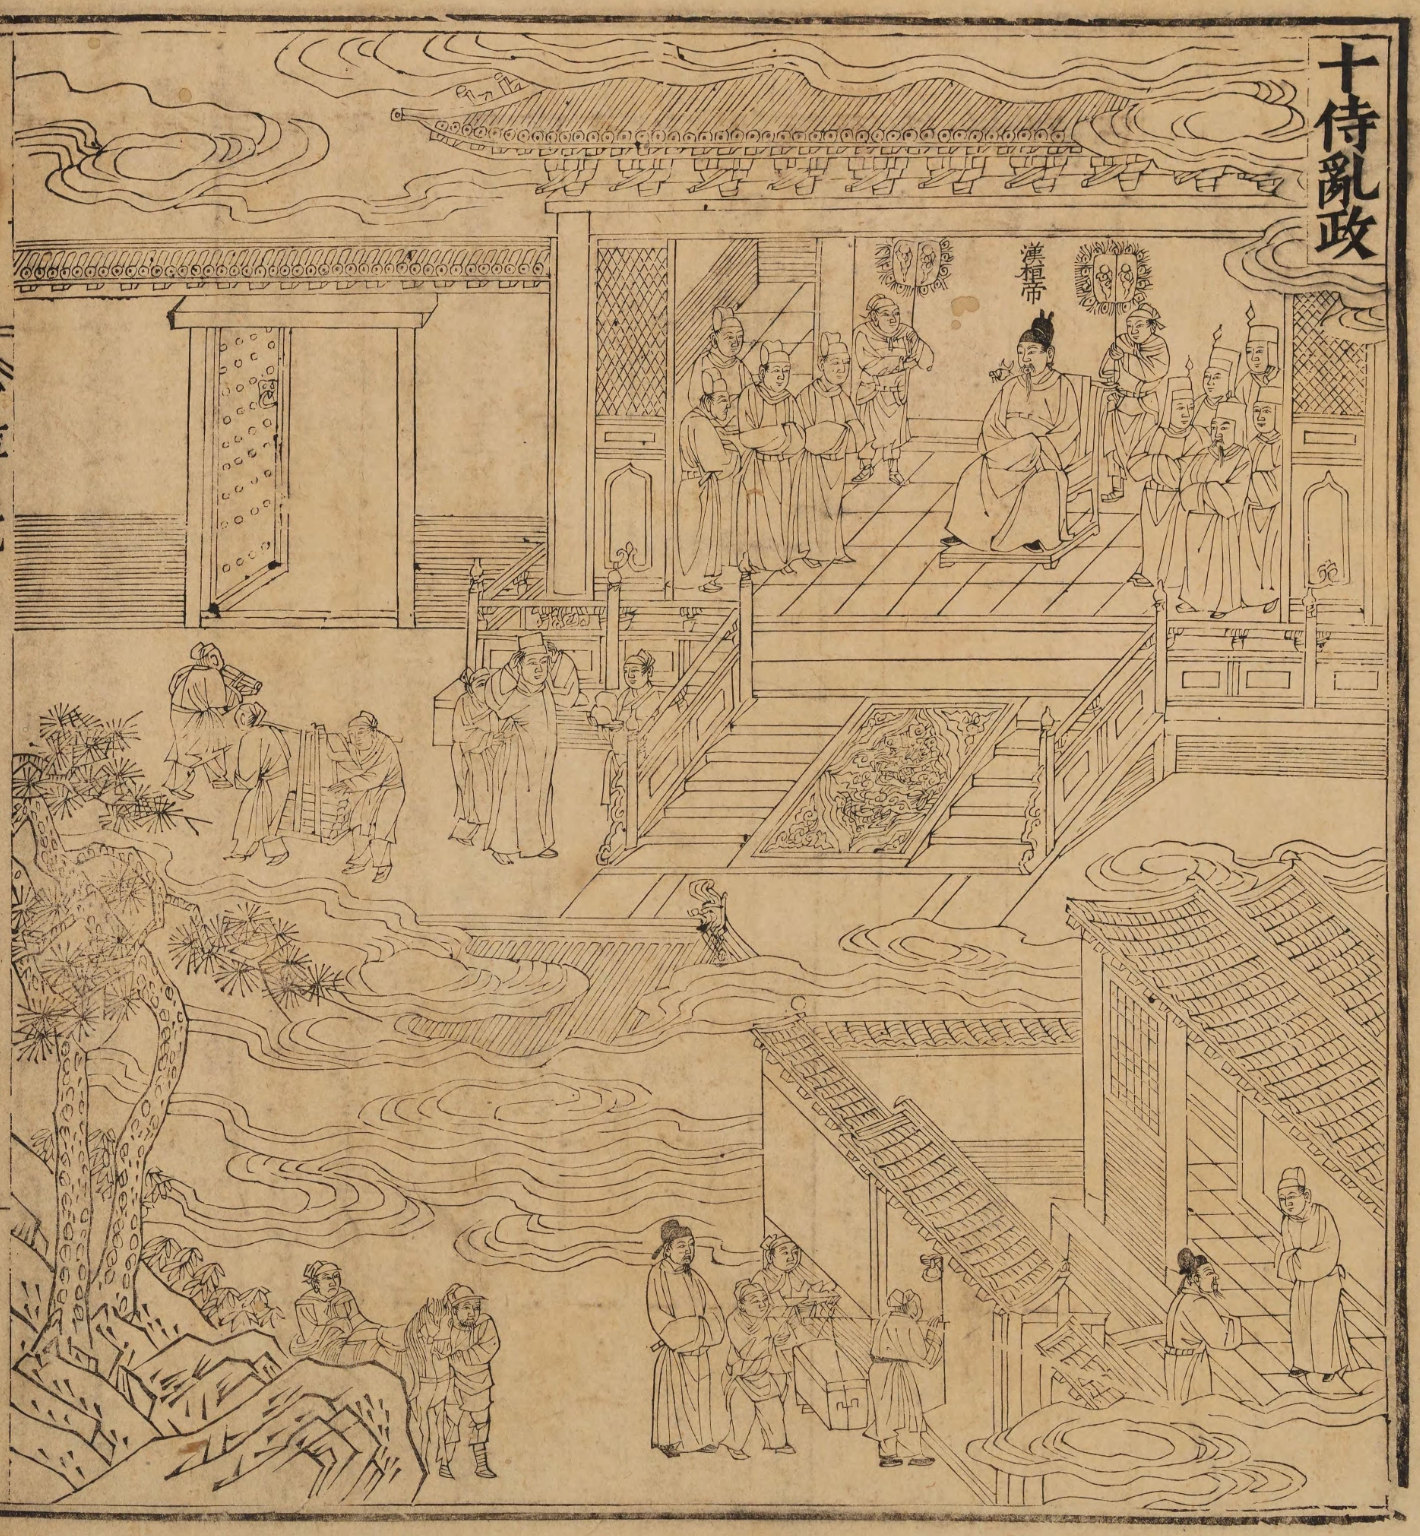 十侍亂政
漢桓帝